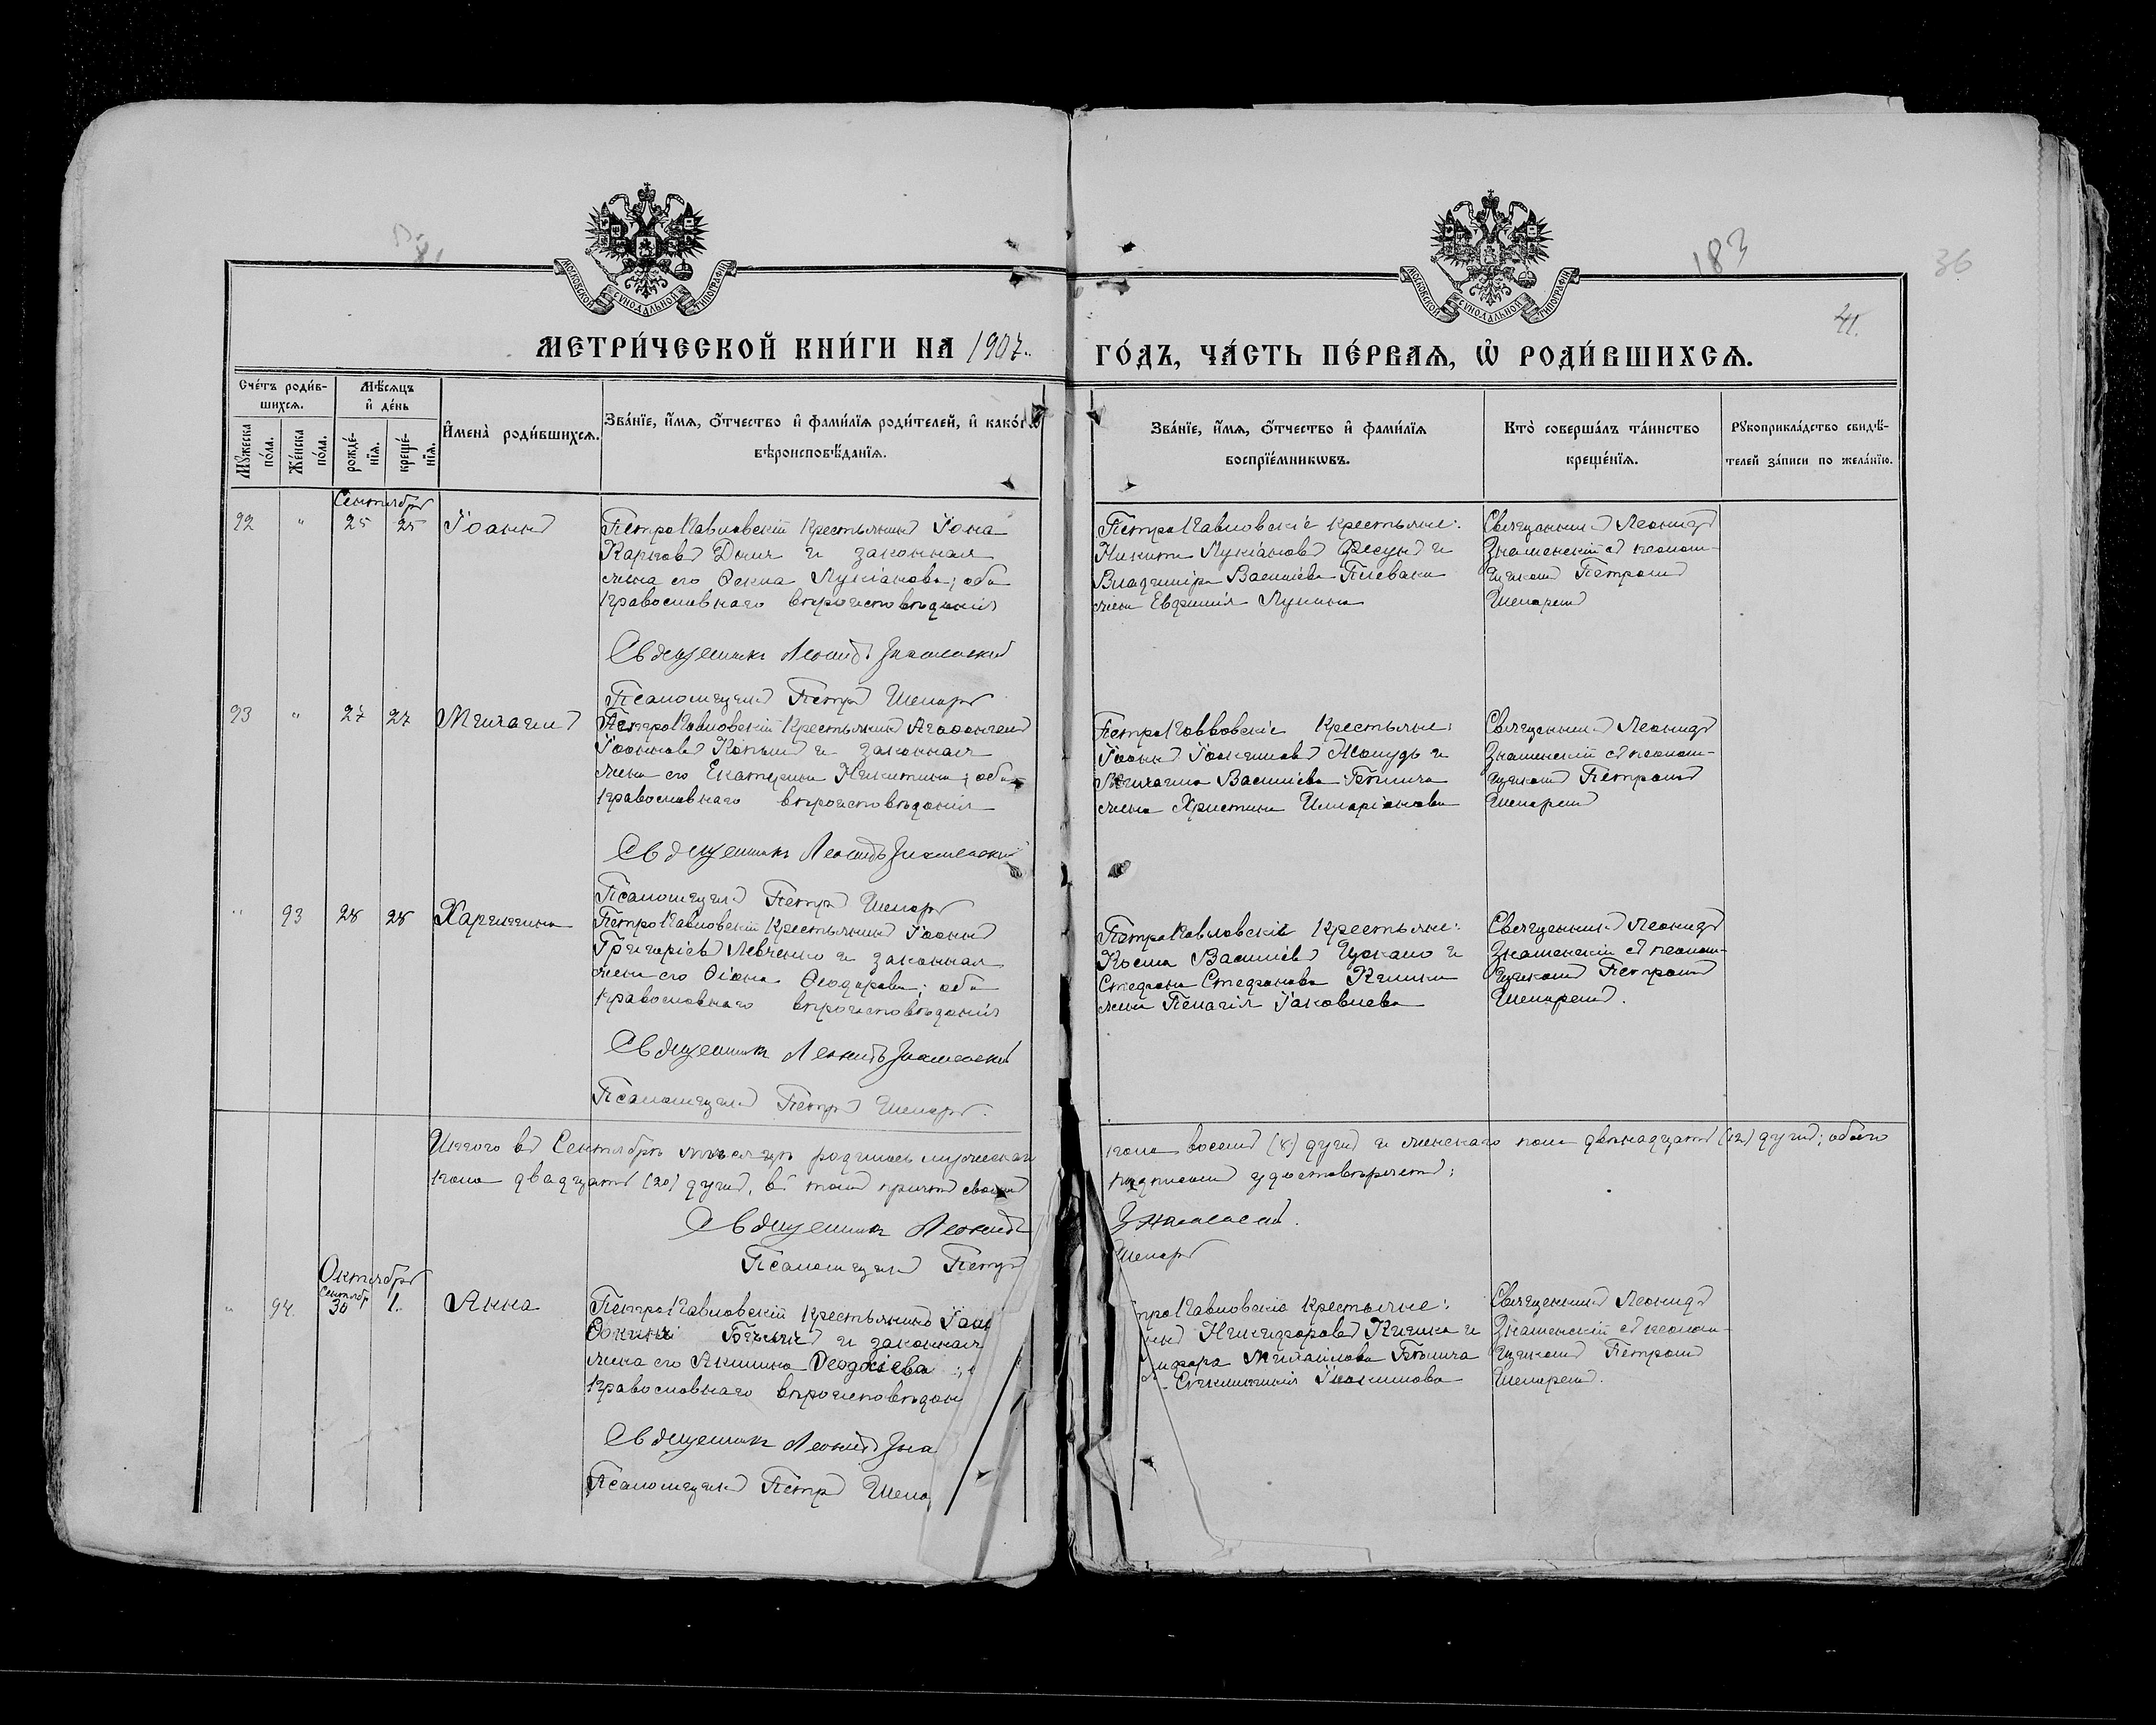 183
36
41.
МОСКОВСКОЙ СѴНОДАЛЬНОЙ ТИПОГРАФІИ
МОСКОВСКОЙ СѴНОДАЛЬНОЙ ТИПОГРАФІИ
МЕТРИ́ЧЕСКОЙ КНИ́ГИ НА 1907.
ГО́ДЪ, ЧА́СТЬ ПЕ́РВАѦ, Ѡ҆ РОДИ́ВШИХСѦ.
Сче́тъ роди́в-
шихсѧ.
Мꙋ́жеска по́ла.
Же́нска по́ла.
Мѣ́сѧцъ
и҆ де́нь
рожде́-
нїѧ.
креще́-
нїѧ.
И҆мена̀ роди́вшихсѧ.
Зва́нїе, и҆́мѧ, ѻ҆́тчество и҆ фами́лїѧ роди́телей, и҆ како́гѡ
вѣроисповѣ́данїѧ.
Зва́нїе, и҆́мѧ, ѻ҆́тчество и҆ фами́лїѧ
воспрїе́мникѡвъ.
Кто̀ соверша́лъ та́инство
креще́нїѧ.
Рꙋкоприкла́дство свидѣ́-
телей за́писи по жела́нїю.
Сентябрь
92 " 25 25 Іоаннъ
ПетроПавловскій крестьянинъ Іона
Карповъ и законная
жена его Ѳекла Лукіанова; оба
православнаго вѣроисповѣданія
Священникъ Леонидъ Знаменскій
Псаломщикъ Петръ Шепаръ
ПетроПавловскіе крестьяне:
Никита Лукіановъ Фесунъ и
Владиміра Васильева Плевака
жена Евфимія Лукина
Священникъ Леонидъ
Знаменскій съ псалом-
щикомъ Петромъ
Шепаремъ
93 " 27 27 Михаилъ
ПетроПавловскій крестьянинъ Агаѳангелъ
Іоанновъ и законная
жена его Екатерина Никитина; оба
православнаго вѣроисповѣданія
Священникъ Леонидъ Знаменскій
Псаломщикъ Петръ Шепаръ
ПетроПавловскіе крестьяне:
Іоаннъ Іоакимовъ и
Михаила Васильева Бѣлича
жена Христина Иларіонова
Священникъ Леонидъ
Знаменскій съ псалом-
щикомъ Петромъ
Шепаремъ
" 93 28 28 Харитина
ПетроПавловскій крестьянинъ Іоаннъ
Григоріевъ Левченко и законная
жена его Ѳеодорова; оба
православнаго вѣроисповѣданія
Священникъ Леонидъ Знаменскій
Псаломщикъ Петръ Шепаръ.
ПетроПавловскіе крестьяне:
Косма Васильевъ Цокало и
Стефана Стефанова
жена Пелагія Іаковлева
Священникъ Леонидъ
Знаменскій съ псалом-
щикомъ Петромъ
Шепаремъ.
Итого въ Сентябрѣ мѣсяцѣ родилось мужескаго
пола восемь (8) душъ и женскаго пола двѣнадцать (12) душъ; обоего
пола двадцать (20) душъ, въ томъ причтъ своимъ
подписомъ удостовѣряетъ:
Священникъ Леонидъ
Знаменскій.
Псаломщикъ Петръ
Шепаръ
Октябрь
Сентябр
" 94. 30 1. Анна
ПетроПавловскій крестьянинъ
и законная
жена его Акилина
православнаго вѣроисповѣдан
Священникъ Леонидъ Зна
Псаломщикъ Петръ Шепа
троПавловскіе крестьяне:
Никифоровъ и
Михайлова Бѣлича
Іоакимова
Священникъ Леонидъ
Знаменскій съ псалом-
щикомъ Петромъ
Шепаремъ.